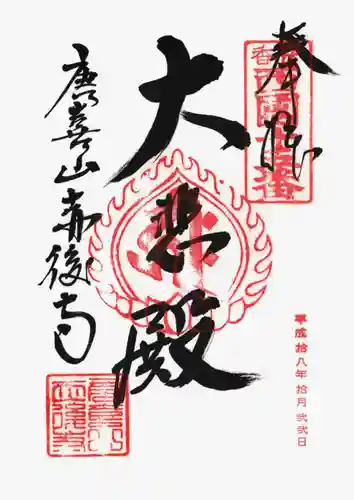 奉拝
大悲殿
唐喜山赤後寺
平成拾八年拾月弐弐日